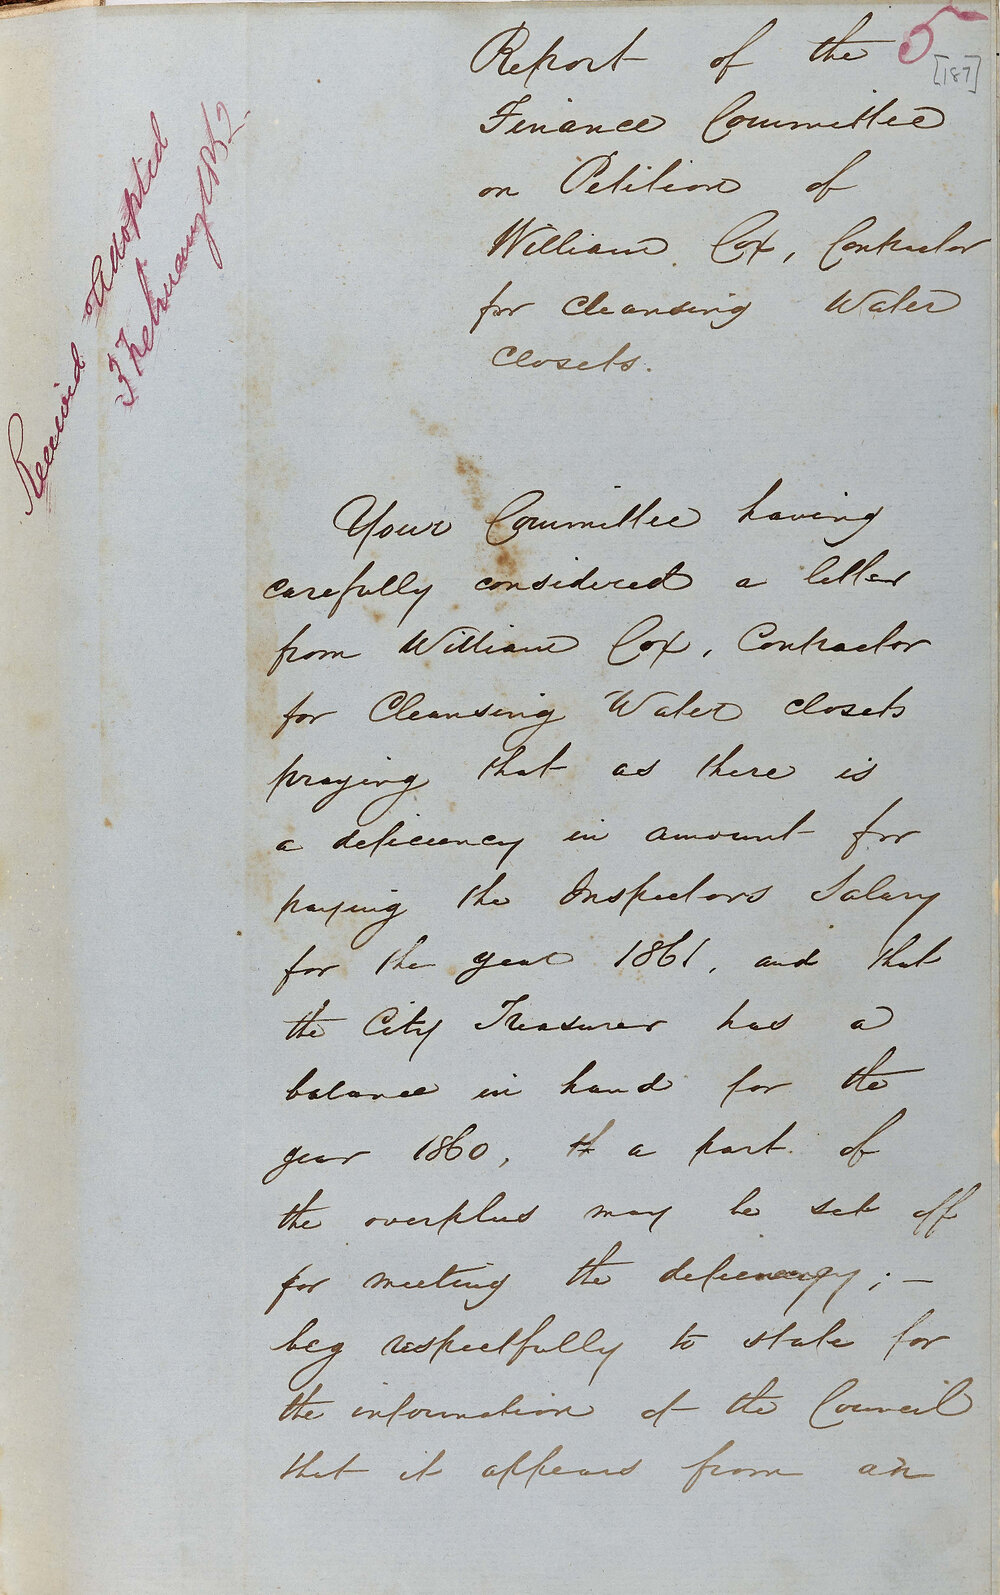 5
[187]
Report of the
Finance Committee
on Petition of
William Cox, Contractor
for cleansing Water
closets.
Received & Adopted
3 February 1862.
Your Committee having
carefully considered a letter
from William Cox, Contractor
for Cleansing Water closets
praying that as there is
a deficiency in amount for
paying the Inspectors Salary
for the year 1861, and that
the City Treasurer has a
balance in hand for the
year 1860, a part of
the overplus may be set off
for meeting the deficiency; —
beg respectfully to state for
the information of the Council
that it appears from an